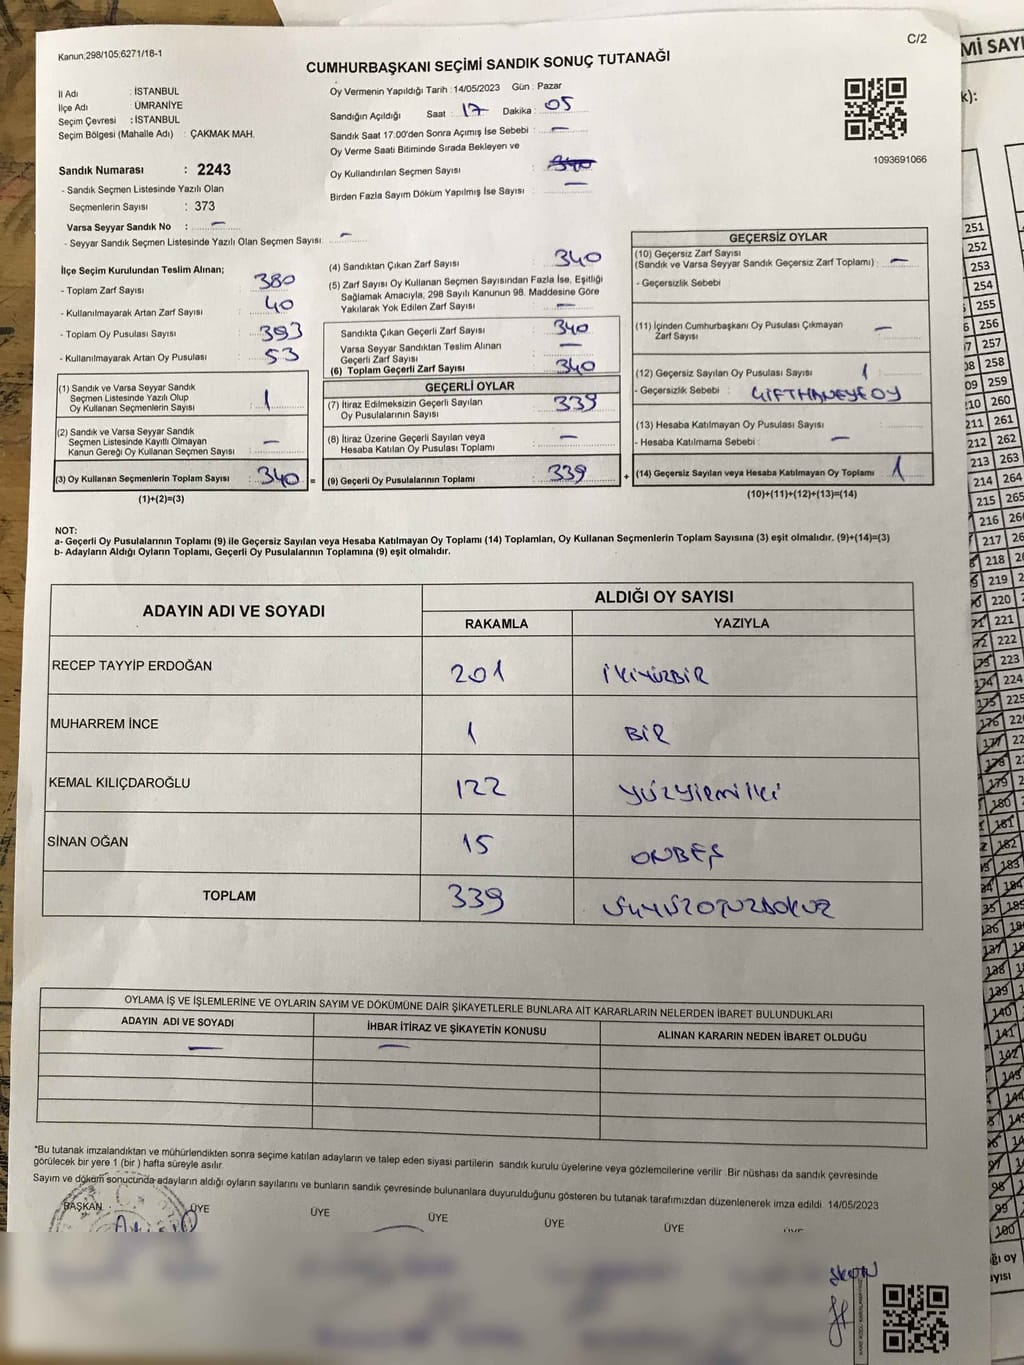 Kanun;298/105;6271/18-1
C/2
CUMHURBAŞKANI SEÇİMİ SANDIK SONUÇ TUTANAĞI
İl Adı : İSTANBUL
İlçe Adı : ÜMRANİYE
Seçim Çevresi : İSTANBUL
Seçim Bölgesi (Mahalle Adı) : ÇAKMAK MAH.
Sandık Numarası : 2243
- Sandık Seçmen Listesinde Yazılı Olan
Seçmenlerin Sayısı : 373
Varsa Seyyar Sandık No : –
- Seyyar Sandık Seçmen Listesinde Yazılı Olan Seçmen Sayısı: –
Oy Vermenin Yapıldığı Tarih : 14/05/2023 Gün : Pazar
Sandığın Açıldığı Saat : 17 Dakika : 05
Sandık Saat 17.00'den Sonra Açımış İse Sebebi : –
Oy Verme Saati Bitiminde Sırada Bekleyen ve
Oy Kullandırılan Seçmen Sayısı : 340
Birden Fazla Sayım Döküm Yapılmış İse Sayısı : –
1093691066
İlçe Seçim Kurulundan Teslim Alınan;
- Toplam Zarf Sayısı : 380
- Kullanılmayarak Artan Zarf Sayısı : 40
- Toplam Oy Pusulası Sayısı : 393
- Kullanılmayarak Artan Oy Pusulası : 53
(1) Sandık ve Varsa Seyyar Sandık
Seçmen Listesinde Yazılı Olup
Oy Kullanan Seçmenlerin Sayısı : 1
(2) Sandık ve Varsa Seyyar Sandık
Seçmen Listesinde Kayıtlı Olmayan
Kanun Gereği Oy Kullanan Seçmen Sayısı : –
(3) Oy Kullanan Seçmenlerin Toplam Sayısı : 340 =
(1)+(2)=(3)
(4) Sandıktan Çıkan Zarf Sayısı : 340
(5) Zarf Sayısı Oy Kullanan Seçmen Sayısından Fazla İse, Eşitliği
Sağlamak Amacıyla, 298 Sayılı Kanunun 98. Maddesine Göre
Yakılarak Yok Edilen Zarf Sayısı : –
Sandıkta Çıkan Geçerli Zarf Sayısı : 340
Varsa Seyyar Sandıktan Teslim Alınan
Geçerli Zarf Sayısı : –
(6) Toplam Geçerli Zarf Sayısı : 340
GEÇERLİ OYLAR
(7) İtiraz Edilmeksizin Geçerli Sayılan
Oy Pusulalarının Sayısı : 339
(8) İtiraz Üzerine Geçerli Sayılan veya
Hesaba Katılan Oy Pusulası Toplamı : –
(9) Geçerli Oy Pusulalarının Toplamı : 339 +
GEÇERSİZ OYLAR
(10) Geçersiz Zarf Sayısı
(Sandık ve Varsa Seyyar Sandık Geçersiz Zarf Toplamı) : –
- Geçersizlik Sebebi :
(11) İçinden Cumhurbaşkanı Oy Pusulası Çıkmayan
Zarf Sayısı : –
(12) Geçersiz Sayılan Oy Pusulası Sayısı : 1
- Geçersizlik Sebebi : ÇİFTHANEYE OY
(13) Hesaba Katılmayan Oy Pusulası Sayısı :
- Hesaba Katılmama Sebebi : –
(14) Geçersiz Sayılan veya Hesaba Katılmayan Oy Toplamı : 1
(10)+(11)+(12)+(13)=(14)
NOT:
a- Geçerli Oy Pusulalarının Toplamı (9) ile Geçersiz Sayılan veya Hesaba Katılmayan Oy Toplamı (14) Toplamları, Oy Kullanan Seçmenlerin Toplam Sayısına (3) eşit olmalıdır. (9)+(14)=(3)
b- Adayların Aldığı Oyların Toplamı, Geçerli Oy Pusulalarının Toplamına (9) eşit olmalıdır.
ADAYIN ADI VE SOYADI
ALDIĞI OY SAYISI
RAKAMLA YAZIYLA
RECEP TAYYİP ERDOĞAN 201 İKİYÜZBİR
MUHARREM İNCE 1 BİR
KEMAL KILIÇDAROĞLU 122 YÜZYİRMİİKİ
SİNAN OĞAN 15 ONBEŞ
TOPLAM 339 ÜÇYÜZOTUZDOKUZ
OYLAMA İŞ VE İŞLEMLERİNE VE OYLARIN SAYIM VE DÖKÜMÜNE DAİR ŞİKAYETLERLE BUNLARA AİT KARARLARIN NELERDEN İBARET BULUNDUKLARI
ADAYIN ADI VE SOYADI İHBAR İTİRAZ VE ŞİKAYETİN KONUSU ALINAN KARARIN NEDEN İBARET OLDUĞU
– –
*Bu tutanak imzalandıktan ve mühürlendikten sonra seçime katılan adayların ve talep eden siyasi partilerin sandık kurulu üyelerine veya gözlemcilerine verilir. Bir nüshası da sandık çevresinde
görülecek bir yere 1 (bir ) hafta süreyle asılır.
Sayım ve döküm sonucunda adayların aldığı oyların sayılarını ve bunların sandık çevresinde bulunanlara duyurulduğunu gösteren bu tutanak tarafımızdan düzenlenerek imza edildi. 14/05/2023
BAŞKAN ÜYE ÜYE ÜYE ÜYE ÜYE ÜYE